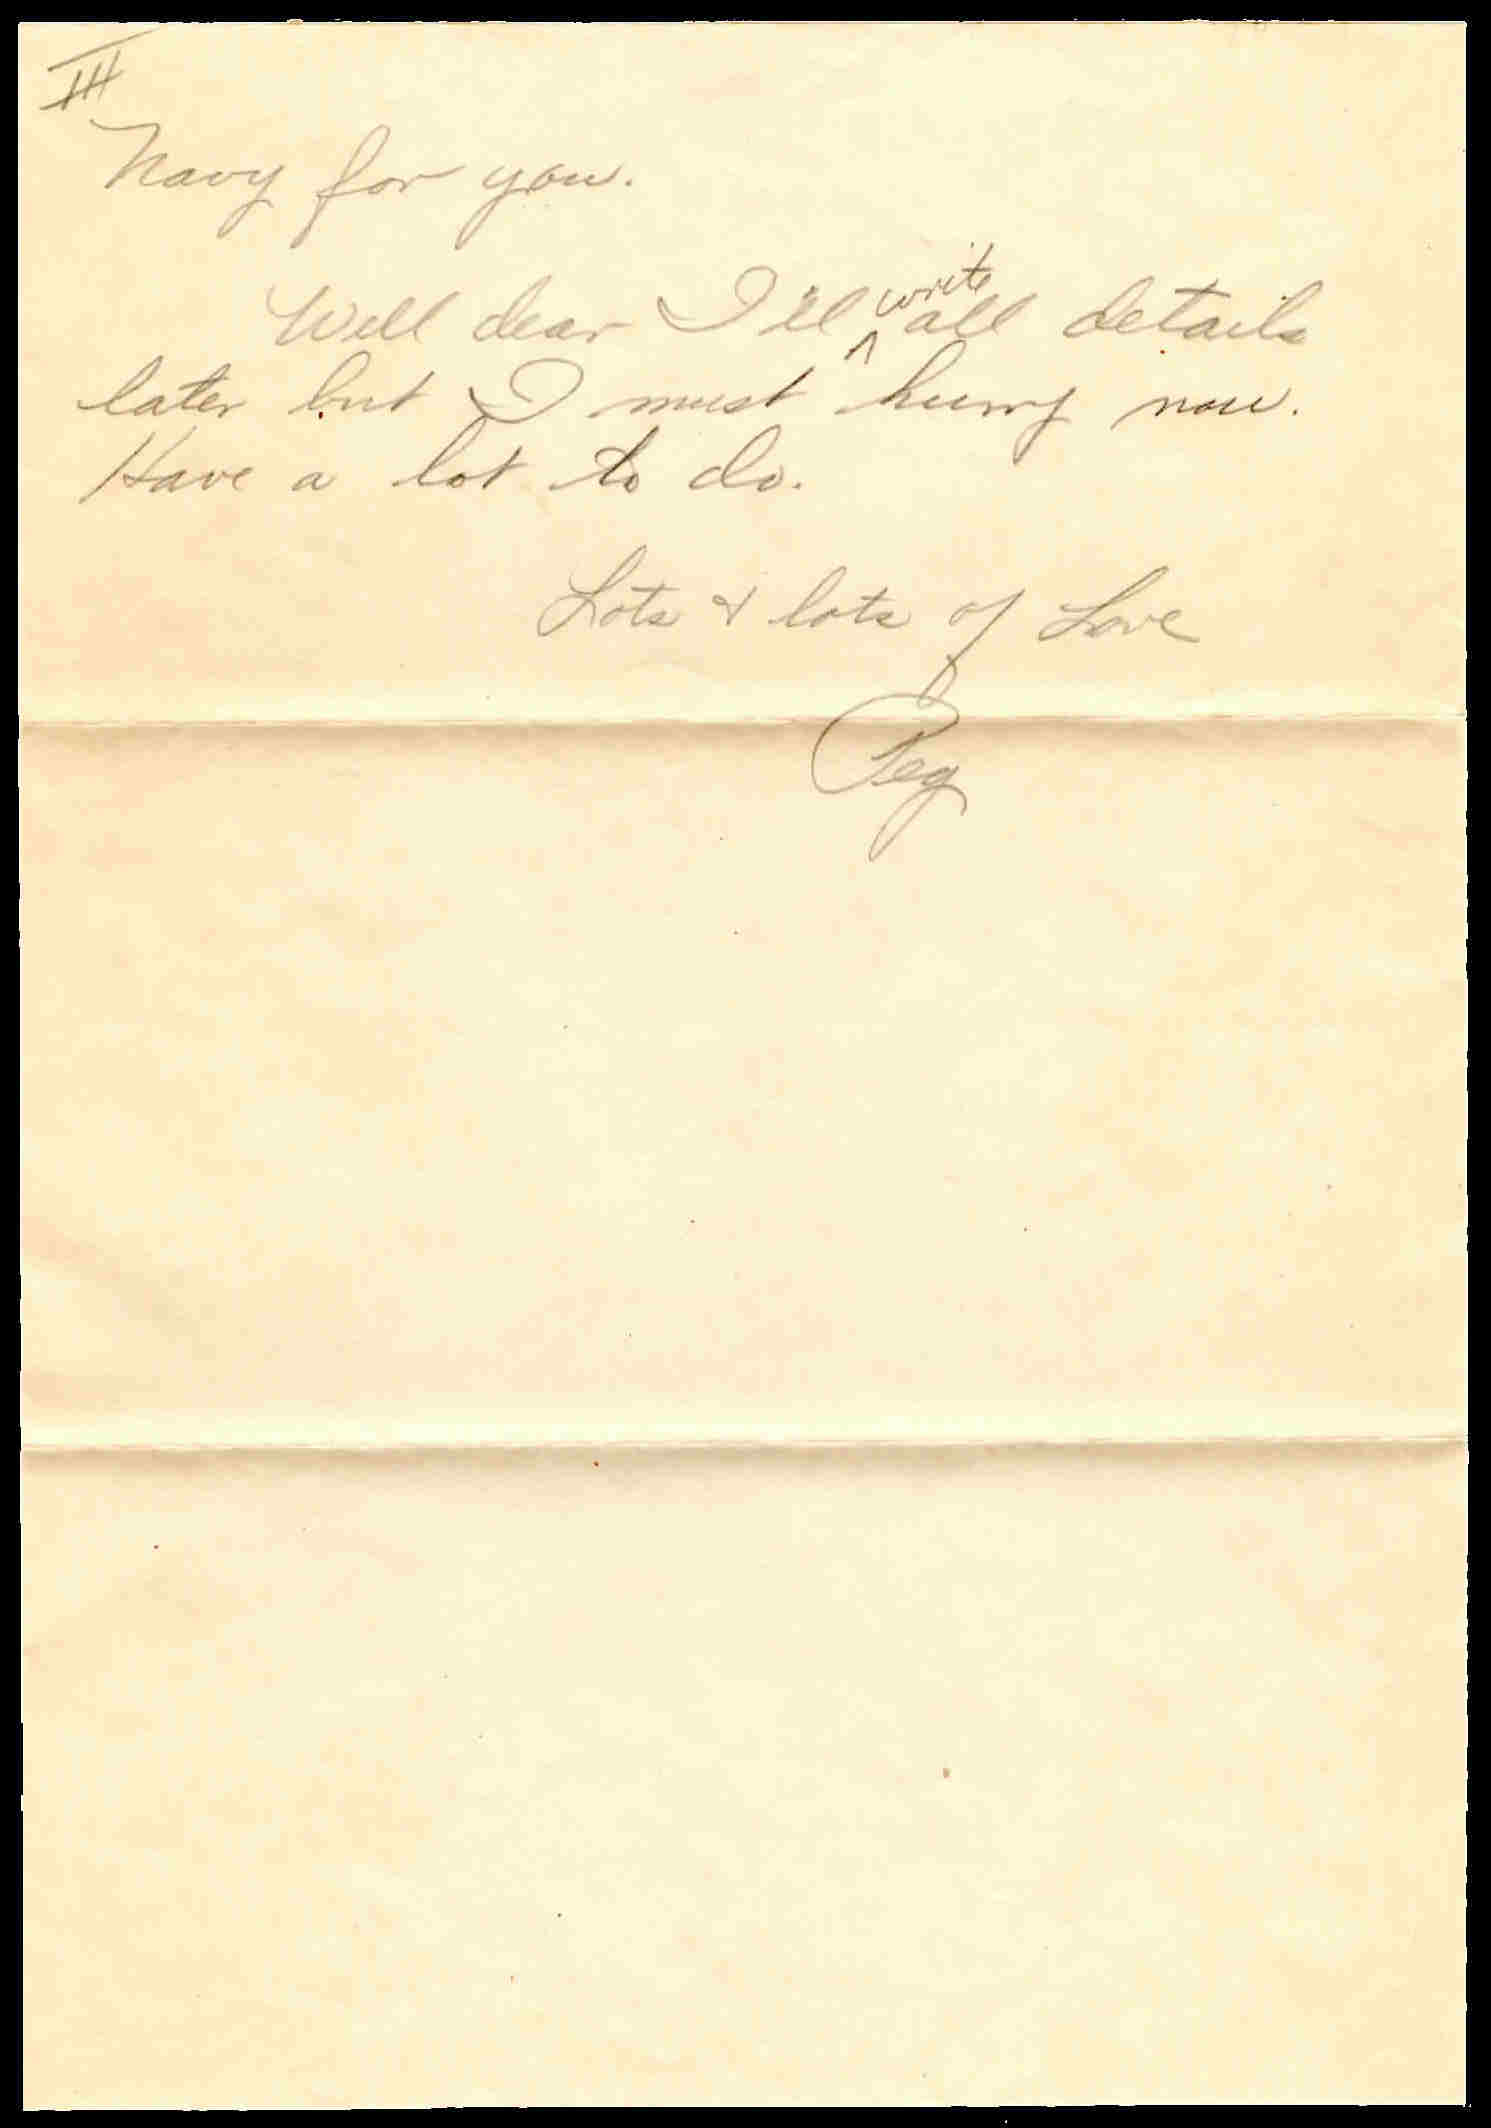 III
Navy for you.
Well dear I'll write all details
later but I must hurry now.
Have a lot to do.
Lots & lots of Love
Peg